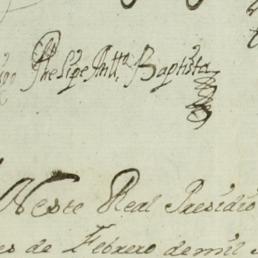 Phelipe Antt.º Baptista
Neste Real Presidio
de Febrero de mil